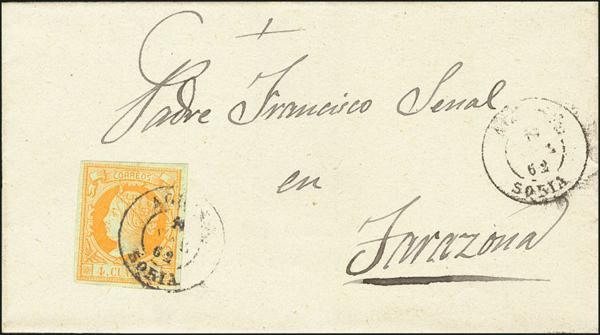 Padre Francisco Senal
en
Tarazona
CORREOS
62
SORIA
62
SORIA